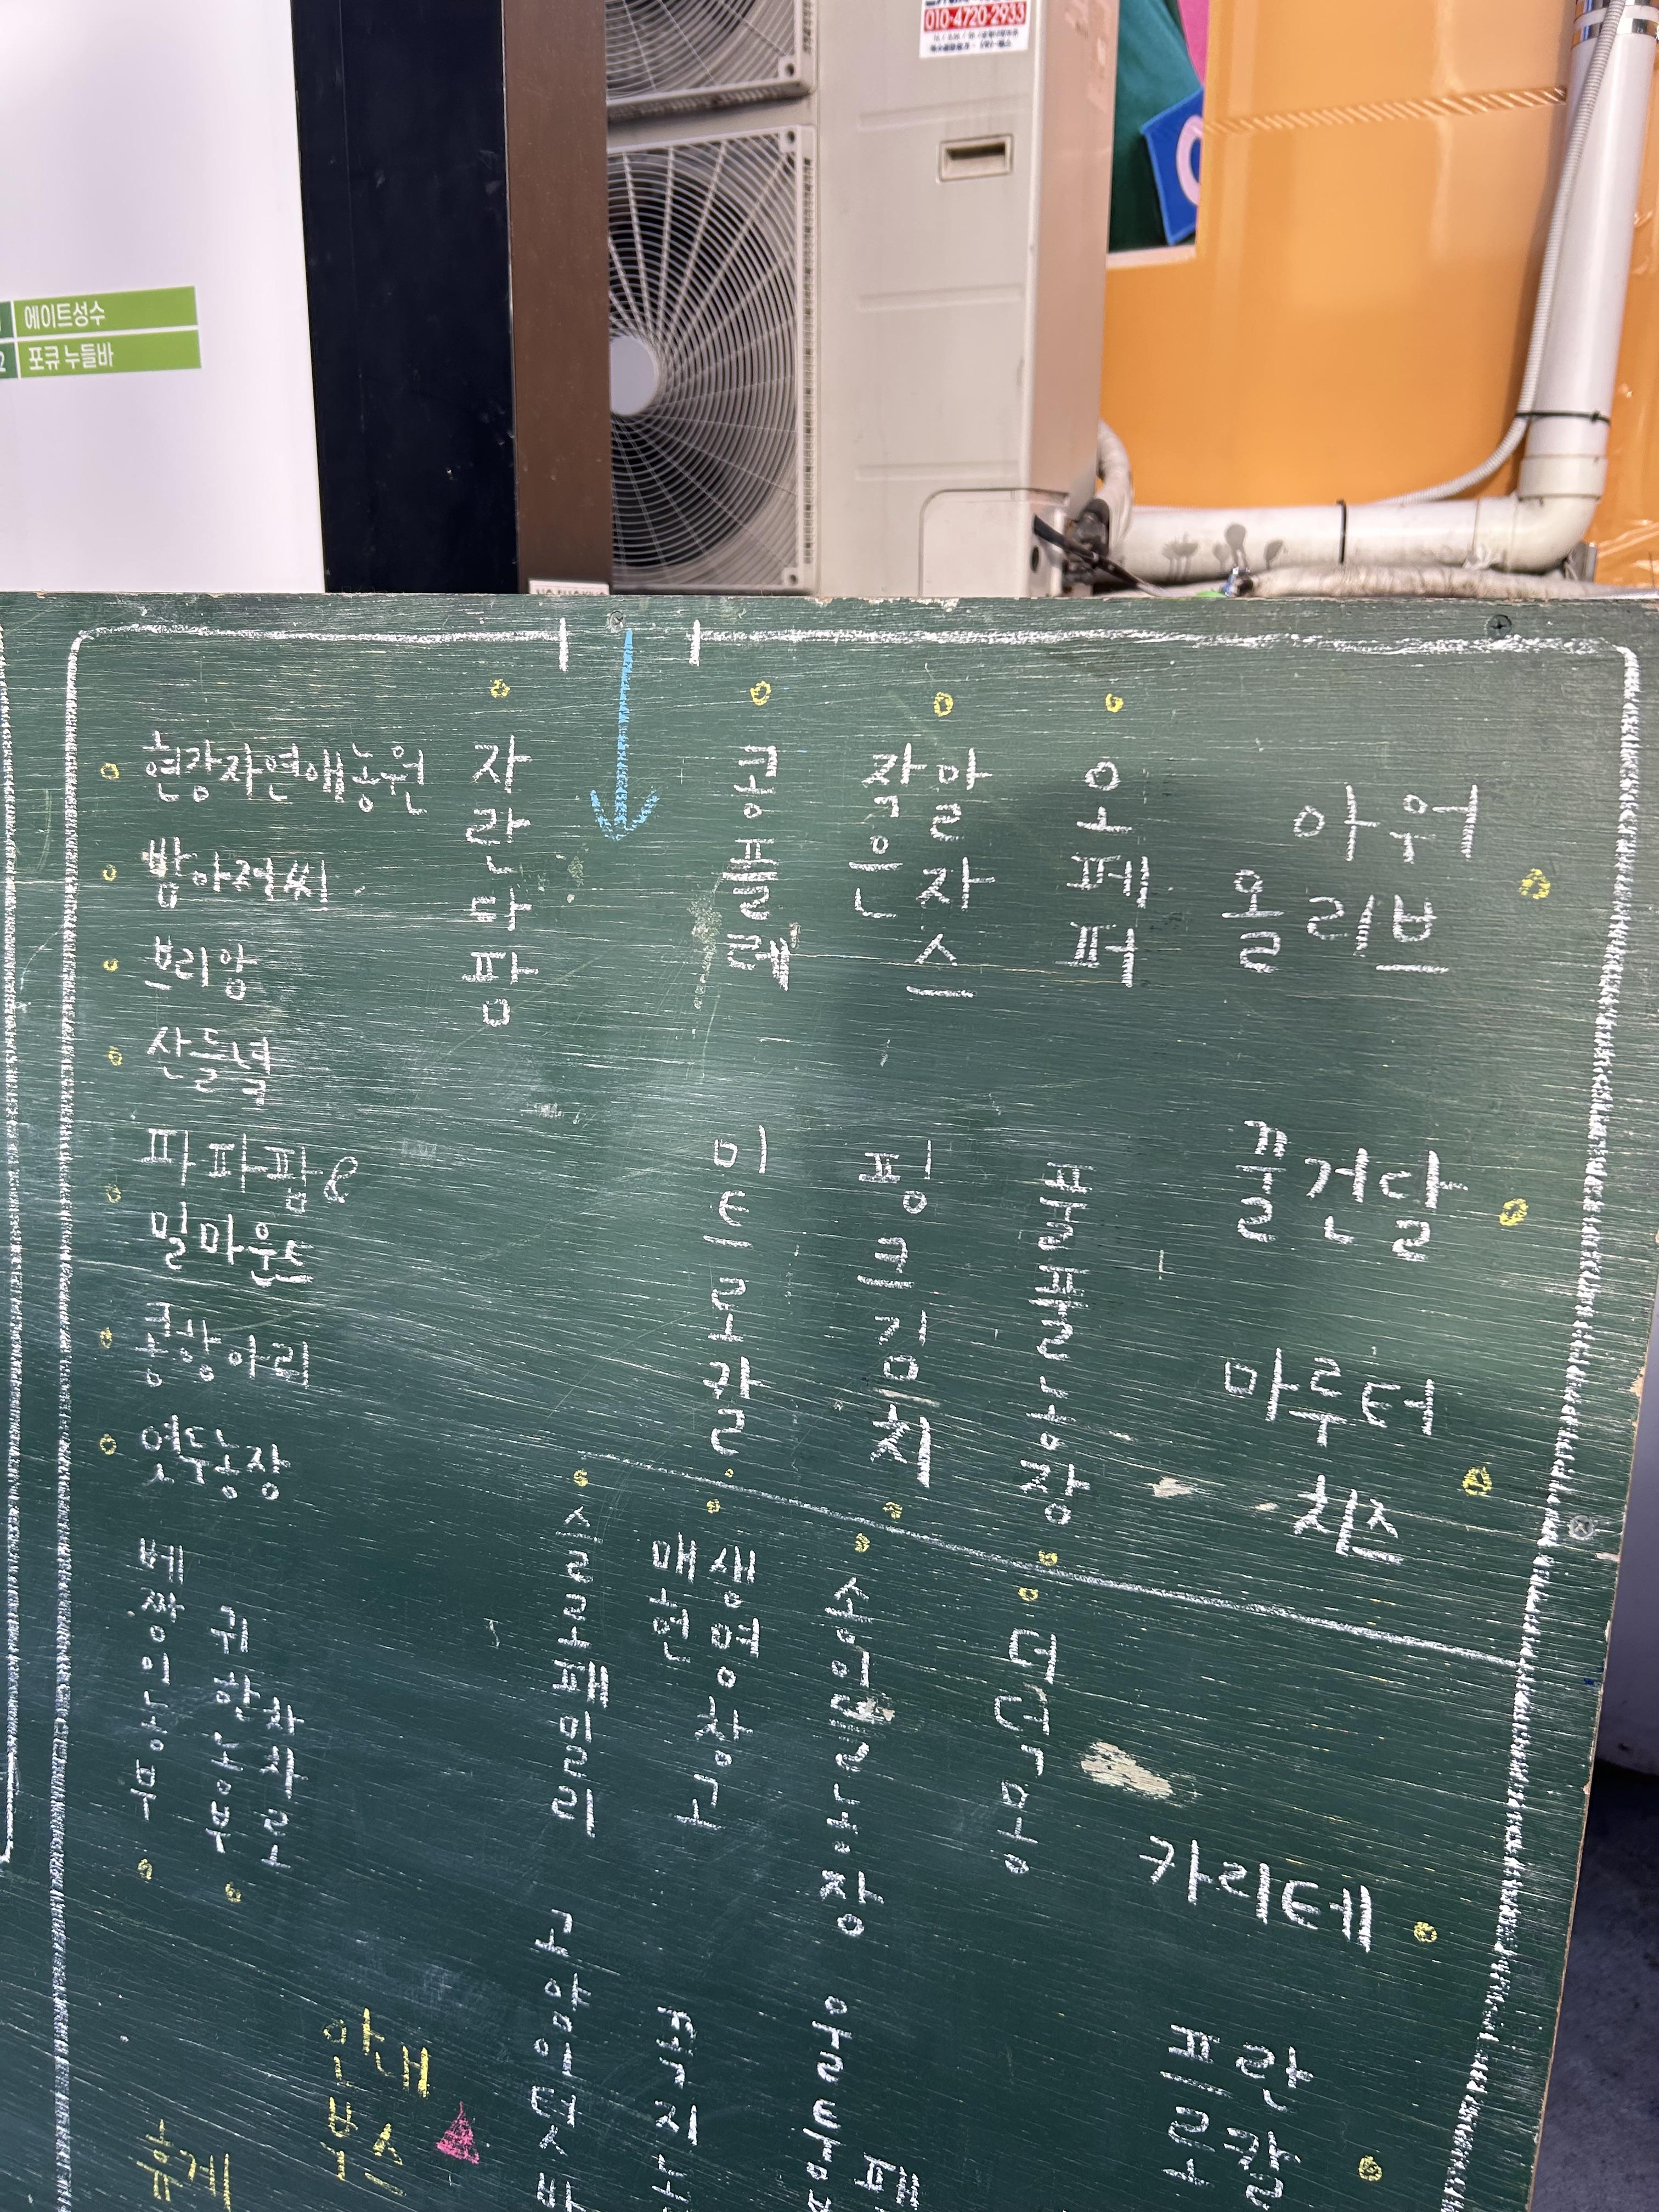 010-4720-2933
에이트성수
2 포큐 누들바
현장자연애농원
밥아저씨
브리앙
산들녘
파파팜&
밀마운트
콩항아리
엿두농장
자란다팜
콩플레
작은
말자스
오페퍼
아워
올리브
미트로칼
핑크김치
풀풀농장
꿀건달
마루터
치즈
베짱이농부
귀한농부
차차로
슬로패밀리
매헌
생명창고
송이달농장
더덕몽
카리테
프란
로칼
고암이텃바
우르퉁
안내
부스
휴게